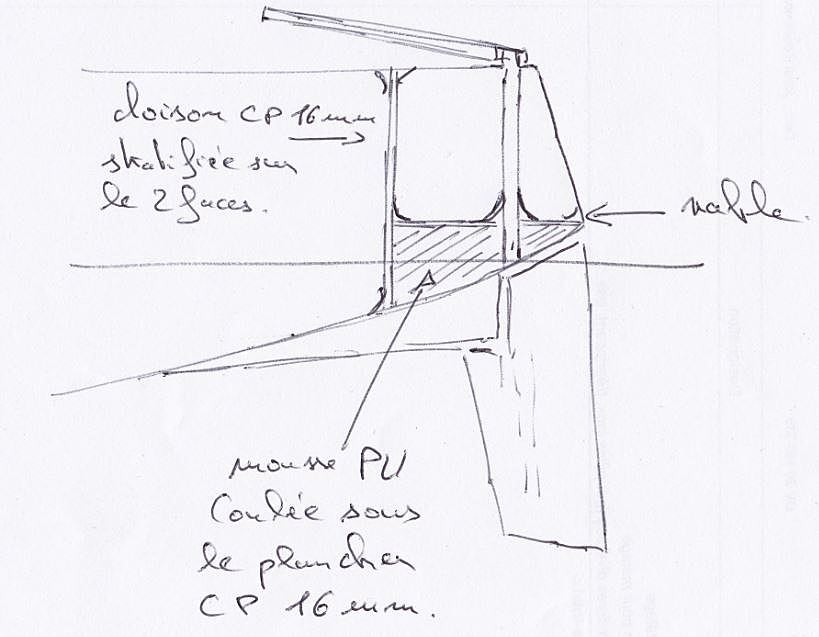 cloison CP 16 mm
stratifiée sur
le 2 faces.
nable.
mousse PU
Coulée sous
le plancher
CP 16 mm.